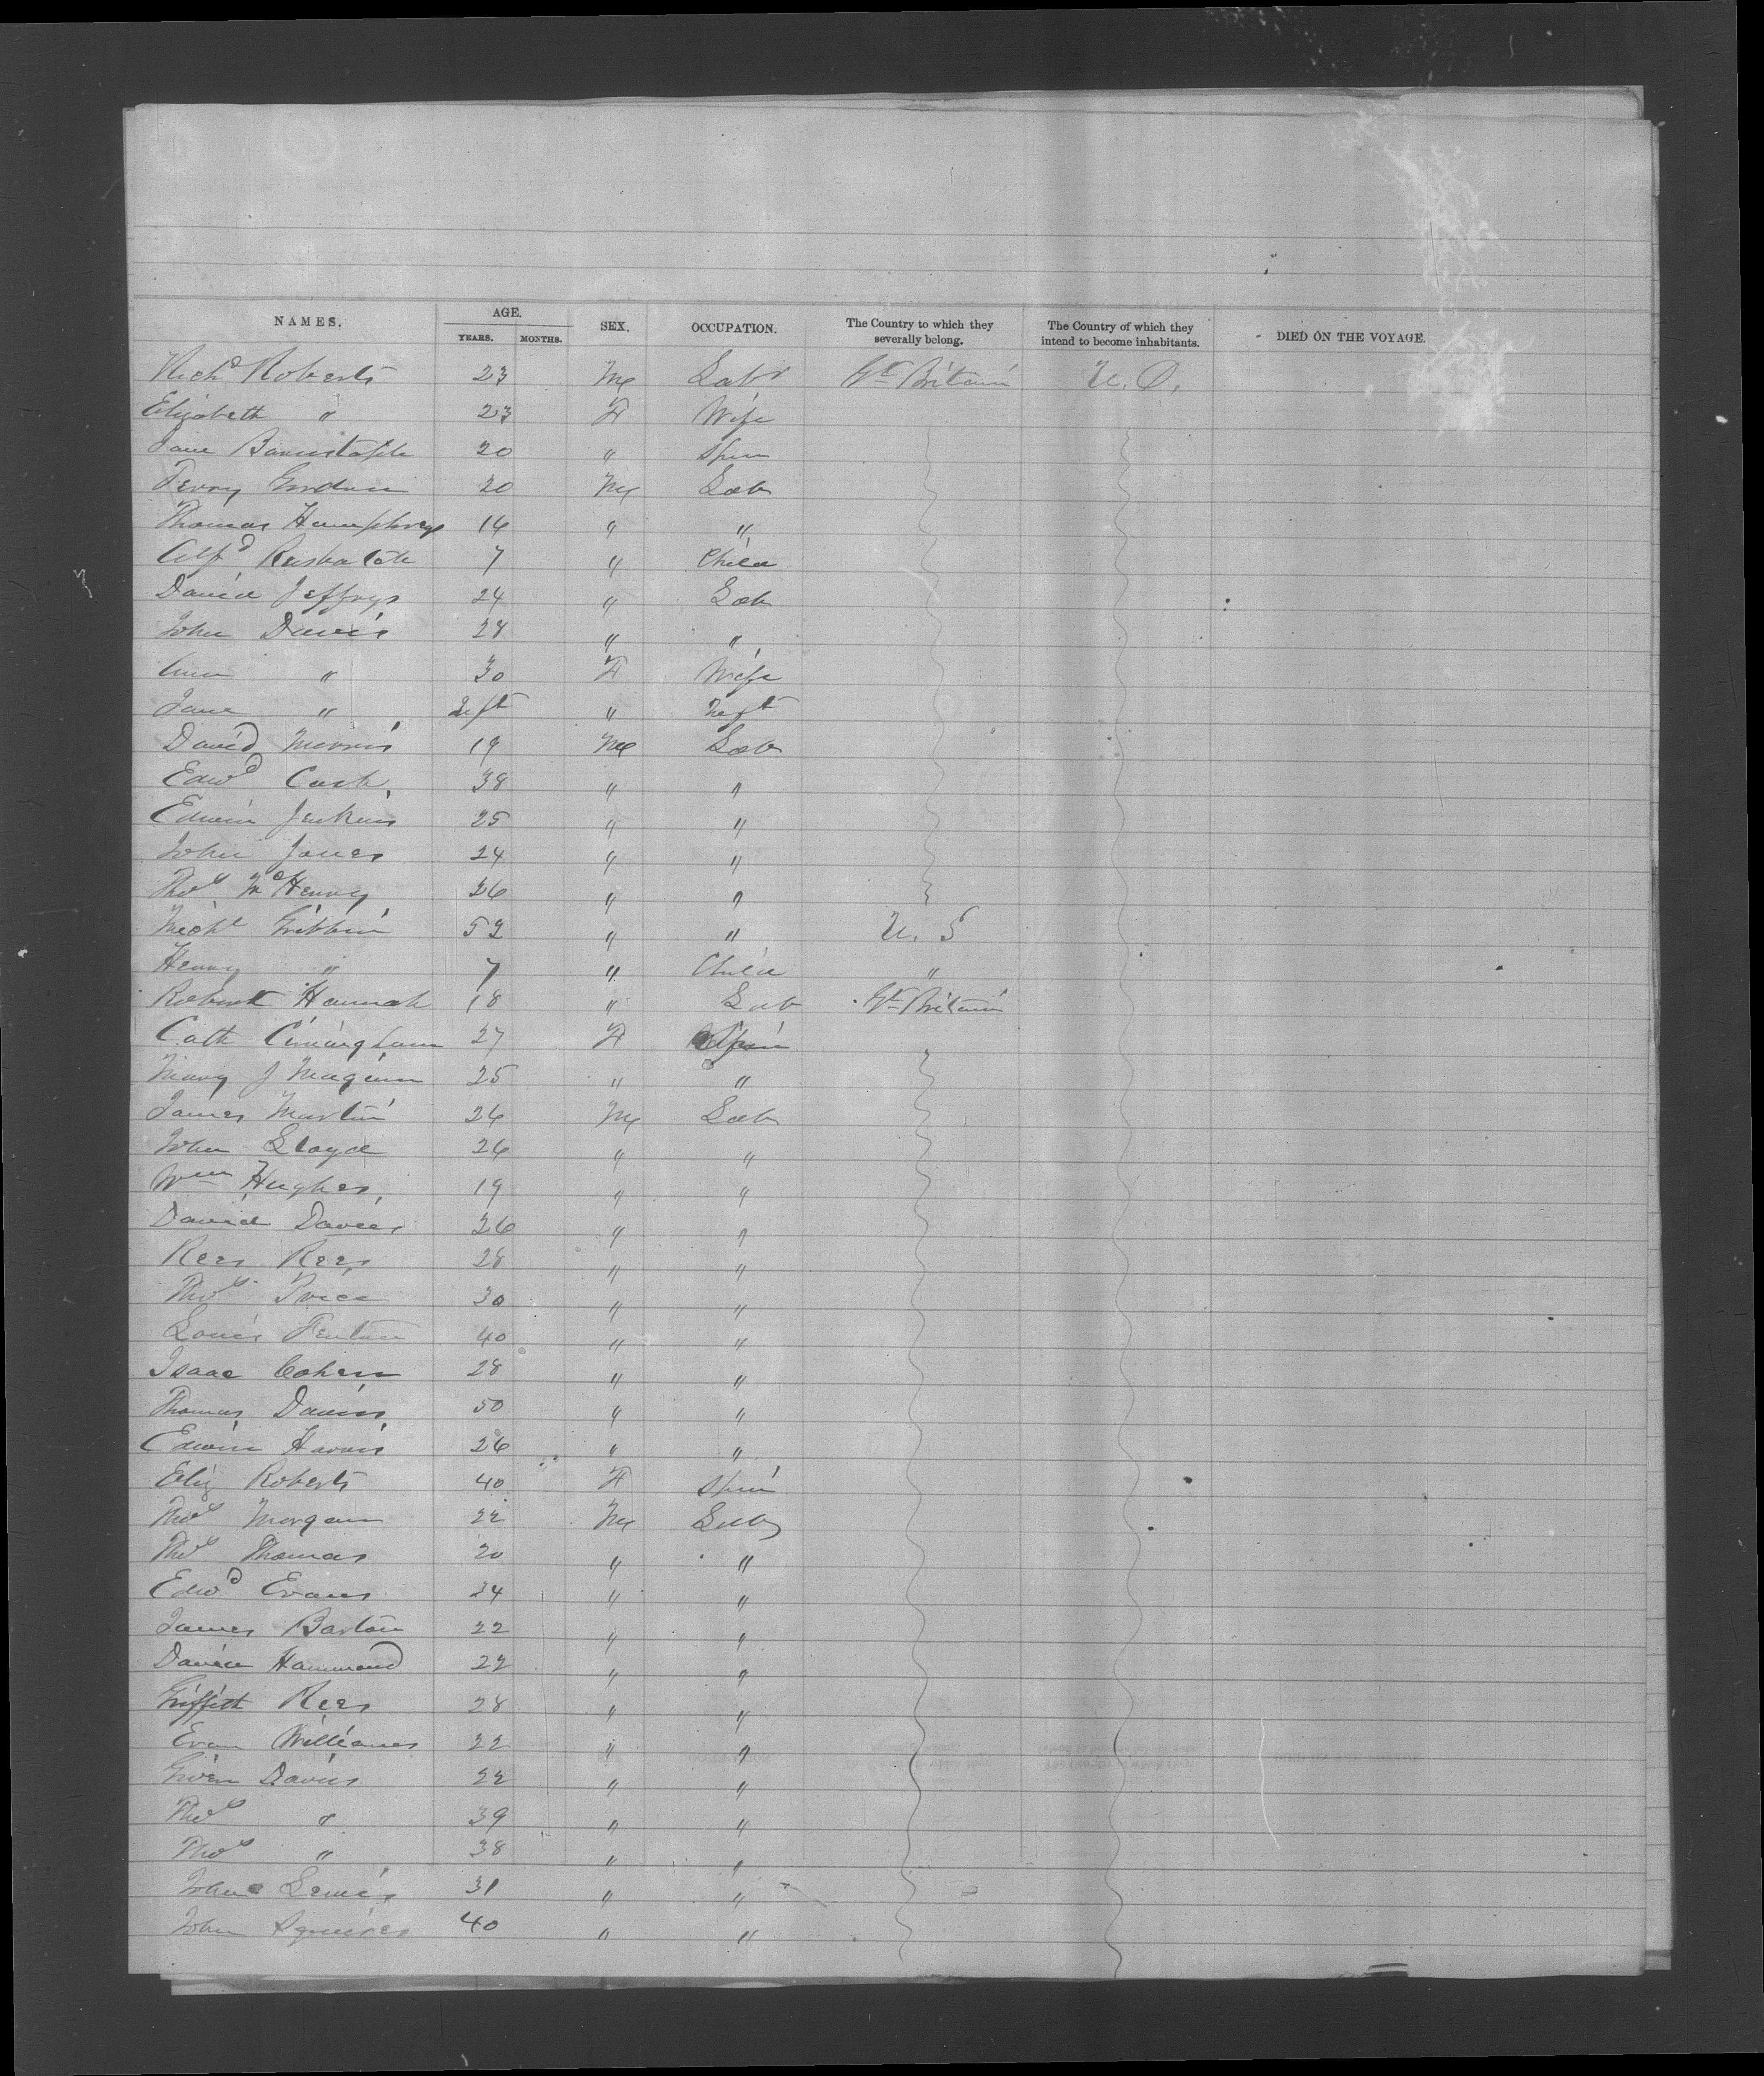 NAMES. AGE. YEARS. MONTHS. SEX. OCCUPATION. The Country to which they severally belong. The Country of which they intend to become inhabitants. DIED ON THE VOYAGE.
Richd Roberts 23 M Labr Gt Britain U. S.
Elizabeth " 23 F Wife
Jane Barnstaple 20 " Spin
Perry 20 M Lab
Thomas Humphreys 16 " "
Alfd 7 " Child
David Jeffrys 24 " Lab
John Davis 28 " "
Ann " 30 F Wife
Jane " Inft " Inft
David Morris 19 M Lab
Edwd Cash 38 " "
Edwin Jenkins 25 " "
John Jones 24 " "
Thos McHenry 26 " "
Michl Gribbin 52 " " U. S
Henry " 7 " Child "
Robert Hannah 18 " Lab Gt Britain
Cath Cuningham 27 F Spin
Mary J Maguin 25 " "
James Martin 26 M Lab
John Lloyd 26 " "
Wm Hughes 19 " "
David Davies 26 " "
Rees Rees 28 " "
Thos Price 30 " "
Louis Fenton 40 " "
Isaac Cohen 28 " "
Thomas Davies 50 " "
Edwin Harris 26 " "
Eliz Roberts 40 F Spin
Thos Morgan 22 M Lab
Thos Thomas 20 " "
Edwd Evans 34 " "
James Barton 22 " "
David Hammond 22 " "
Griffith Rees 28 " "
Evan Williams 22 " "
Gwen Davies 22 " "
Thos " 39 " "
Thos " 38 " "
John Lewis 31 " "
John Squires 40 " "